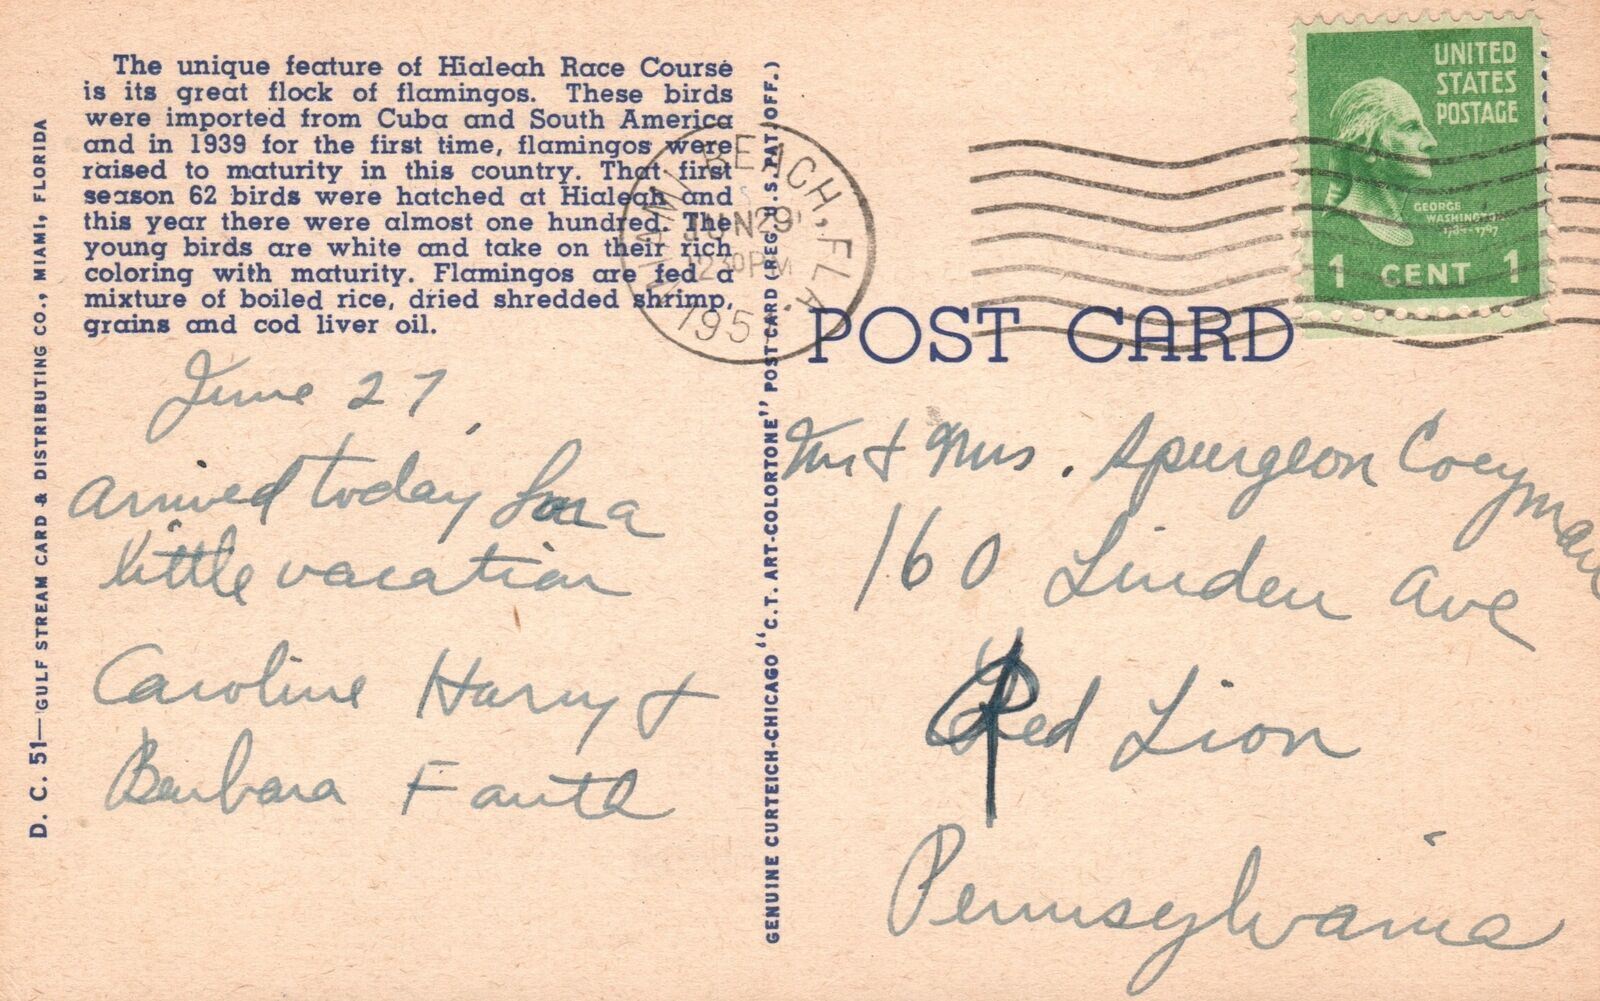 The unique feature of Hialeah Race Course
is its great flock of flamingos. These birds
were imported from Cuba and South America
and in 1939 for the first time, flamingos were
raised to maturity in this country. That first
season 62 birds were hatched at Hialeah and
this year there were almost one hundred. The
young birds are white and take on their rich
coloring with maturity. Flamingos are fed a
mixture of boiled rice, dried shredded shrimp,
grains and cod liver oil.
June 27
arrived today for a
little vacation
Caroline Harry &
Barbara Fauth
D. C. 51—GULF STREAM CARD & DISTRIBUTING CO., MIAMI, FLORIDA
GENUINE CURTEICH-CHICAGO "C. T. ART-COLORTONE" POST CARD (REG. U. S. PAT. OFF.)
MIAMI BEACH, FLA.
JUN 29
PM
195
POST CARD
UNITED
STATES
POSTAGE
GEORGE
WASHINGTON
1789-1797
1 CENT 1
Mr & Mrs. Spurgeon Coeyman
160 Linden Ave
Red Lion
Pennsylvania